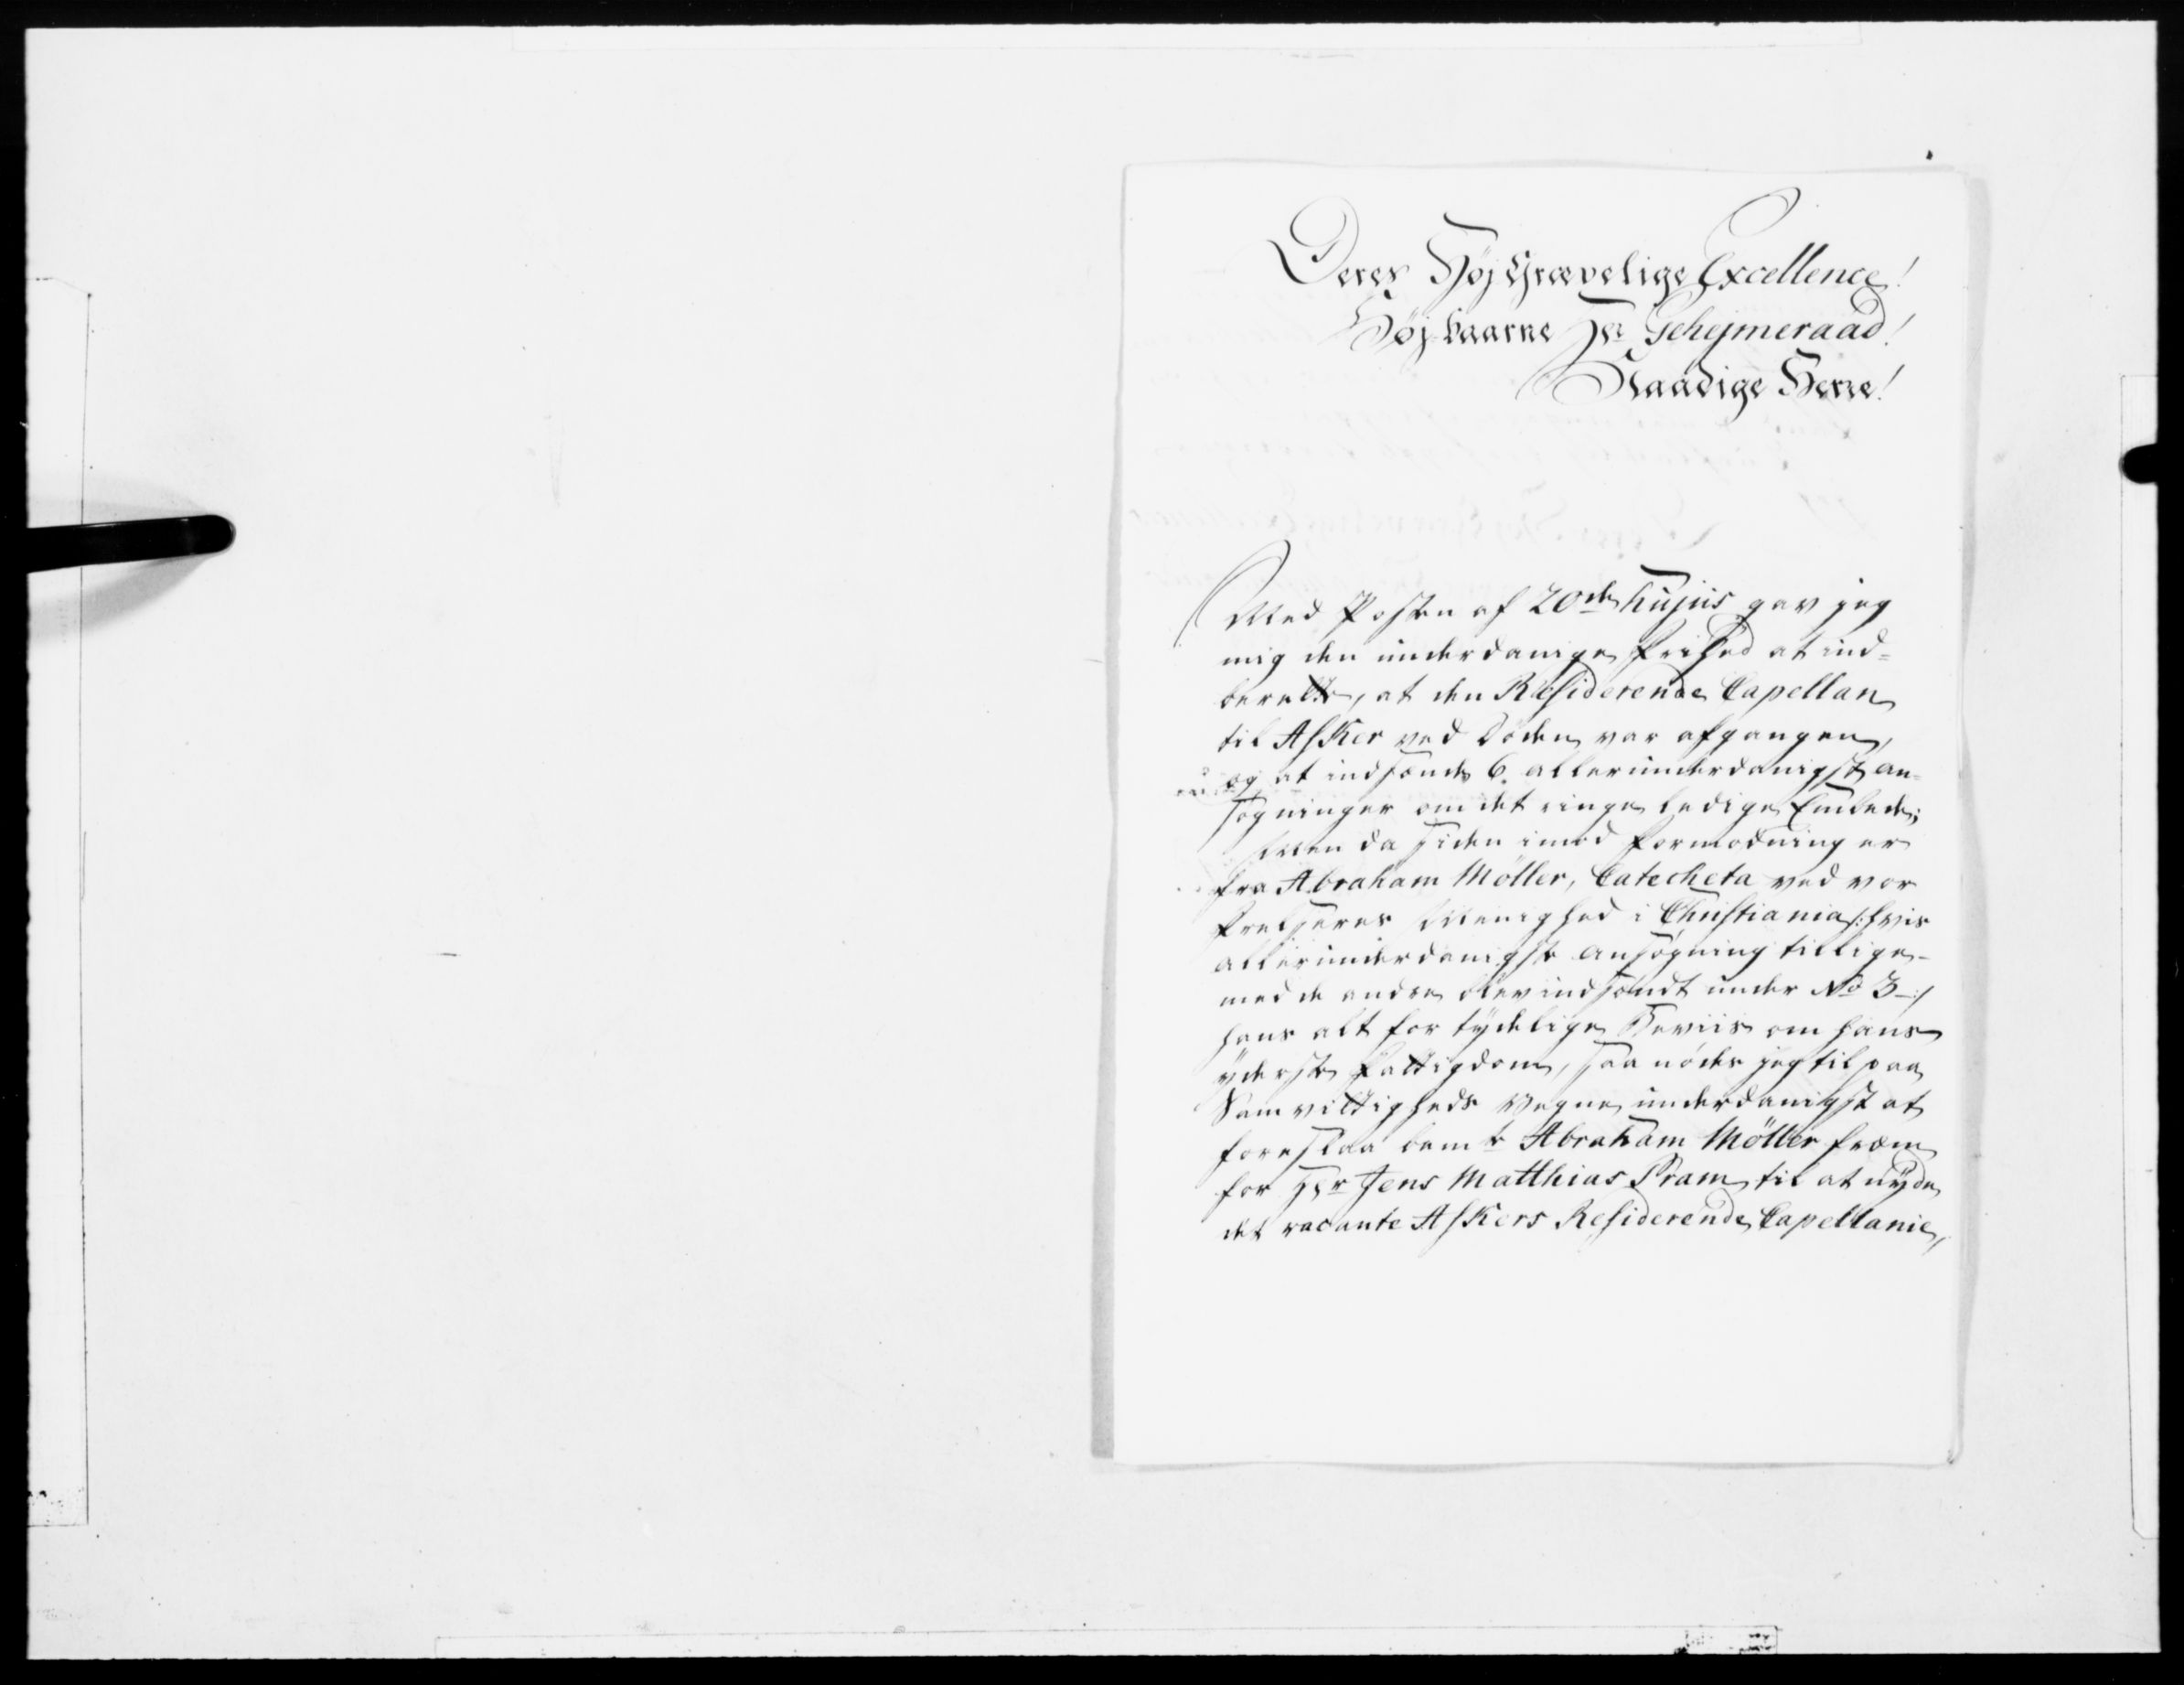 Deres HøjGrævelige Excellence!
Høj-baarne Hr Gehejmeraad!
Naadige Herre!
Med Posten af 20de hujus gav jeg
mig den underdanige Frihed at ind=
berette, at den Residerende Capellan
til Asker ved Døden var afgangen,
og at indsende 6. allerunderdanigste an-
søgninger om det ringe ledige Embede;
Men da siden imod formodning er
fra Abraham Möller, Catecheta ved vor
Frelseres Menighed i Christiania /: hvis
allerunderdanigste ansøgning tillige-
med de andre blev indsendt under No 3 :/
hans alt for tydelige Beviis om hans
yderste Fattigdom, saa nødes jeg til paa
Samvittigheds Vegne underdanigst at
foreslaa bemte Abraham Möller frem
for Hr Jens Matthias Pram til at nyde
det vacante Askers Residerende Capellanie,